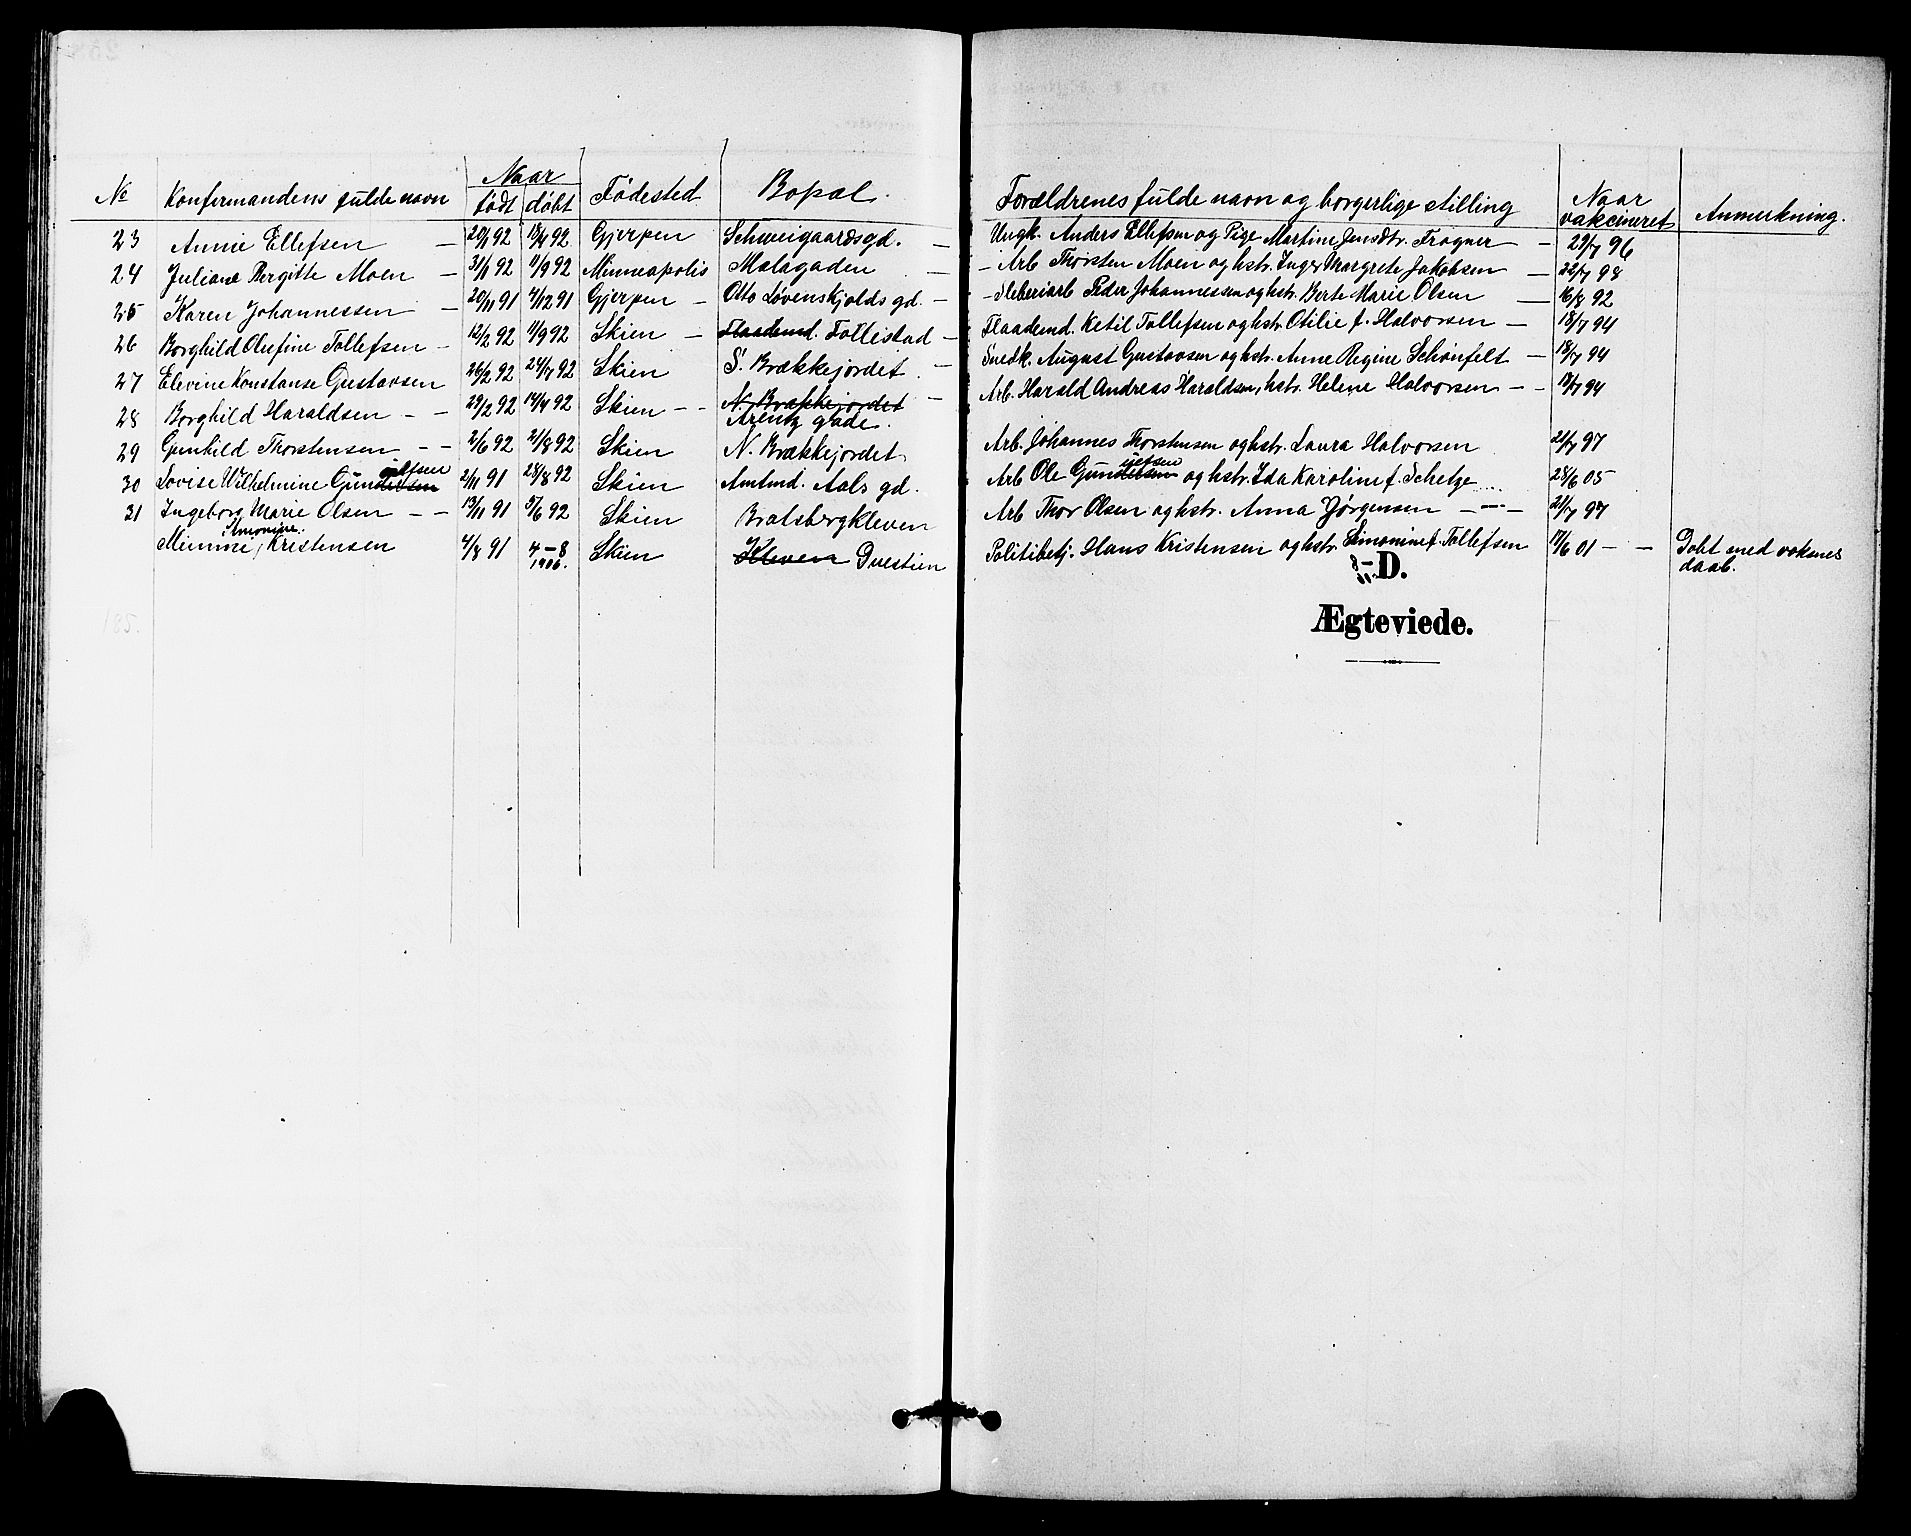 Naar
№ Konfirmandens fulde navn født døbt Fødested Bopæl. Forældrenes fulde navn og borgerlige stilling Naar vakcineret Anmerkning.
23 Annie Ellefsen — 20/1 92 18/4 92 Gjerpen Schweigaardsgd. — Ungk. Anders Ellefsen og Pige Martine Jensdtr. Frogner — 29/7 96
24 Juliane Bergitte Moen — 31/1 92 11/9 92 Minneapolis Mælagaden — – Arb Thorsten Moen og hstr. Inger Margrete Jakobsen — 22/7 98
25 Karen Johannessen — 20/11 91 4/12 91 Gjerpen — Otto Løvenskjolds gd. — – Sleberiarb Peder Johannessen og hstr. Berte Marie Olsen — 16/8 92
26 Borghild Olufine Tollefsen – 12/2 92 11/9 92 Skien – Flaademd. Follestad – Flaademd. Ketil Tollefsen og hstr. Otilie f. Halvorsen – 18/7 94
27 Elevine Konstanse Gustavsen 26/2 92 24/7 92 Skien S. Brækkejordet. – Snedk. August Gustavsen og hstr. Anne Regine Schønfelt – 18/7 94
28 Borghild Haraldsen – – 29/2 92 14/4 92 Skien – – N. Brækkejordet – Arb. Harald Andreas Haraldsen, hstr. Helene Halvorsen – – 18/7 94
Arentz gade.
29 Gunhild Thorstensen – – 2/6 92 21/8 92 Skien N. Brækkejordet Arb. Johannes Thorstensen og hstr. Laura Halvorsen 21/7 97
30 Lovise Wilhelmine Gundersen 2/11 91 28/8 92 Skien Amtmd. Aals gd. Arb Ole Gundersen og hstr. Ida Karoline f. Schetze 28/6 05
31 Ingeborg Marie Olsen – – 13/11 91 5/6 92 Skien Bratsbergkleven Arb Thor Olsen og hstr. Anna Jørgensen – – – 21/7 97
Simonine.
Mimmi, Kristensen 4/8 91 4–8 1906. Skien Kleven Duestien Politibetj. Hans Kristensen og hstr. Simonine f. Tollefsen 17/6 01 – – Døbt med voksnes
daab.
D.
Ægteviede.
185.